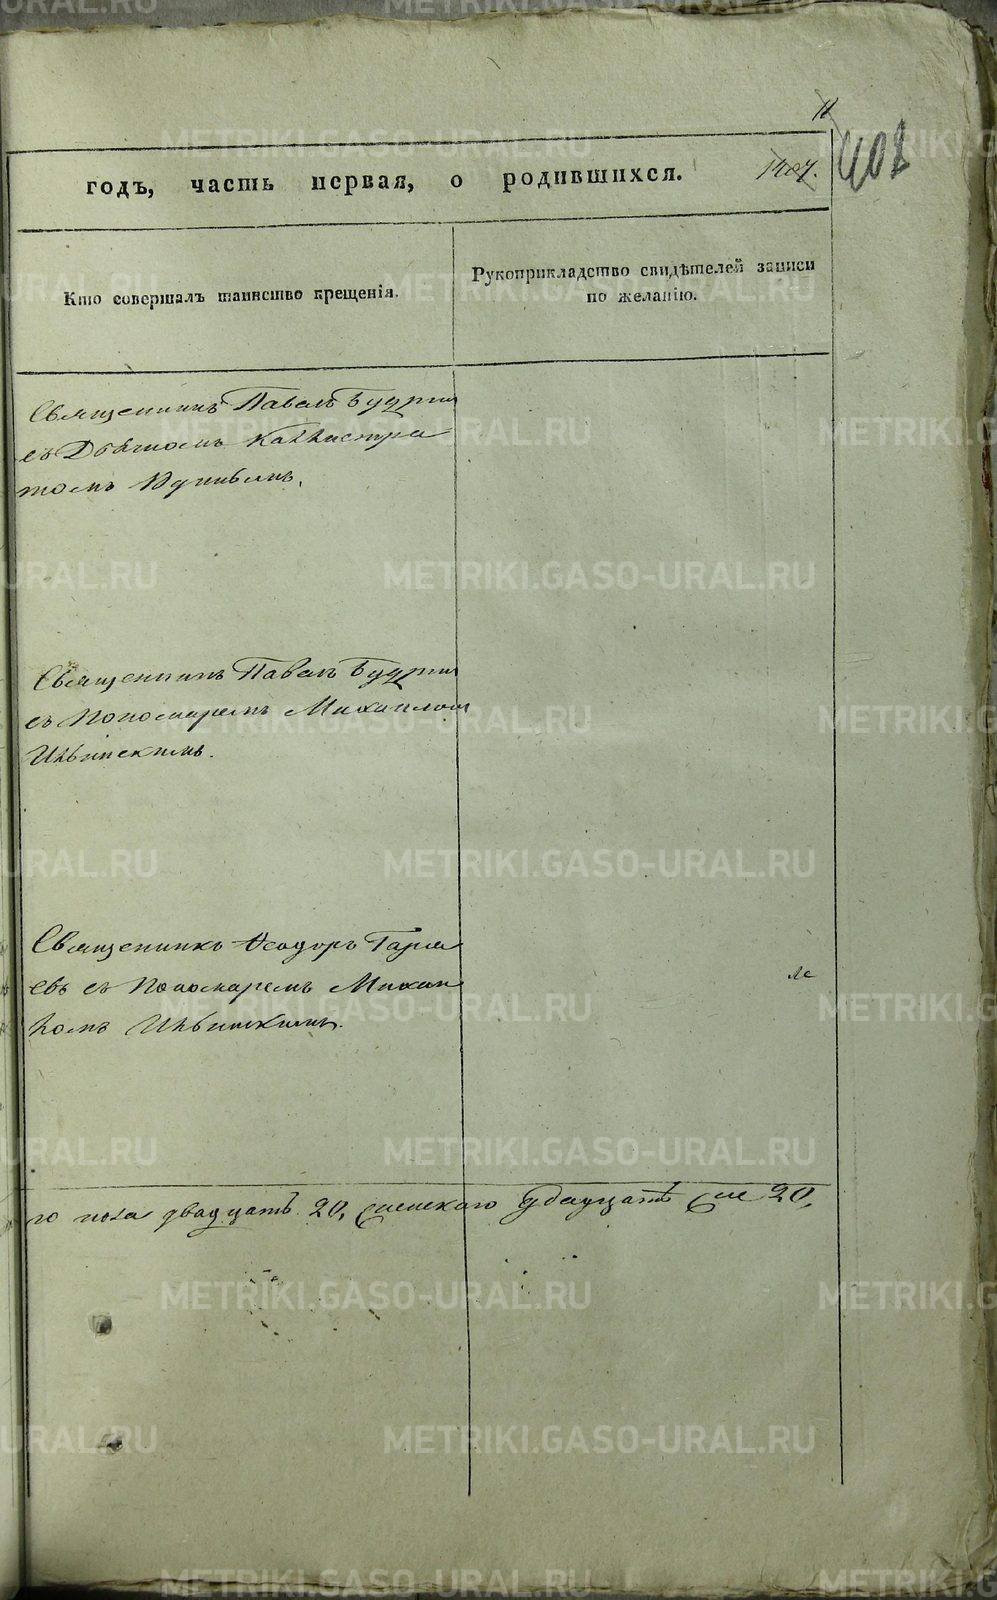 11
402
годъ, часть первая, о родившихся. 1487.
Кто совершалъ таинство крещенія.
Рукоприкладство свидѣтелей записи
по желанію.
Священникъ Павелъ Будрин
съ Дьячкомъ Каллистра
томъ
Священникъ Павелъ Будрин
съ Пономаремъ Михаиломъ
Ильинскимъ.
Священникъ Ѳеодоръ
евъ съ Пономаремъ Михаи
ломъ Ильинскимъ.
го пола двадцать 20, женскаго двадцать же 20,
METRIKI.GASO-URAL.RU